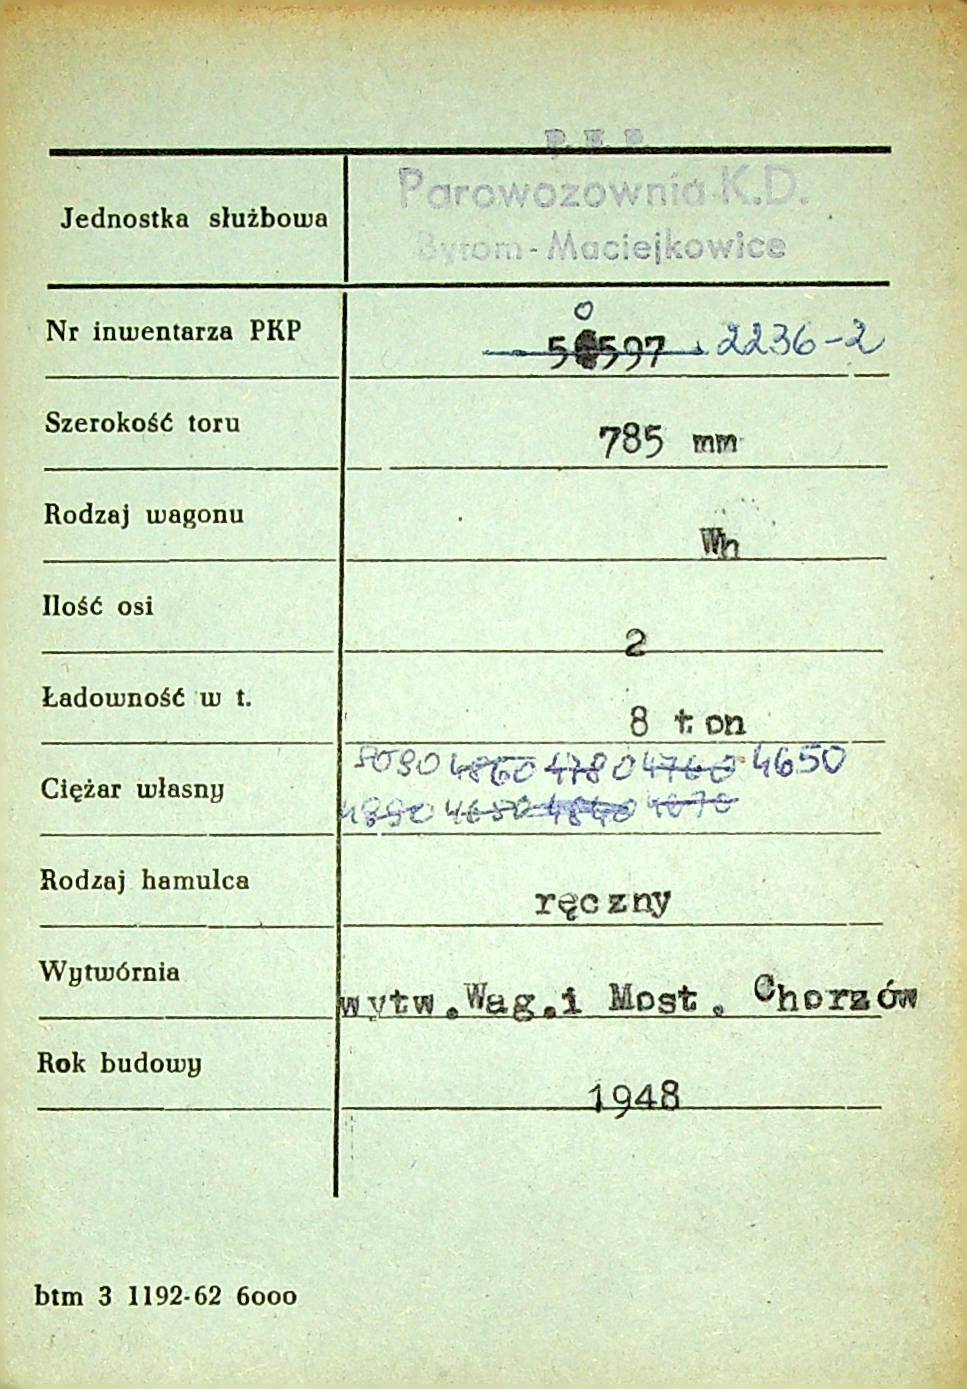 P. K. P.
Parowozownia K.D.
Jednostka służbowa
Bytom-Maciejkowice
0
Nr inwentarza PKP 597 2236-2
Szerokość toru 785 mm
Rodzaj wagonu Wh
Ilość osi 2
Ładowność w t. 8 ton
5090 4860 4780 4760 4650
Ciężar własny
4650 4840 4670
Rodzaj hamulca ręczny
Wytwórnia wytw.Wag.i Most. Chorzów
Rok budowy 1948
btm 3 1192-62 6000